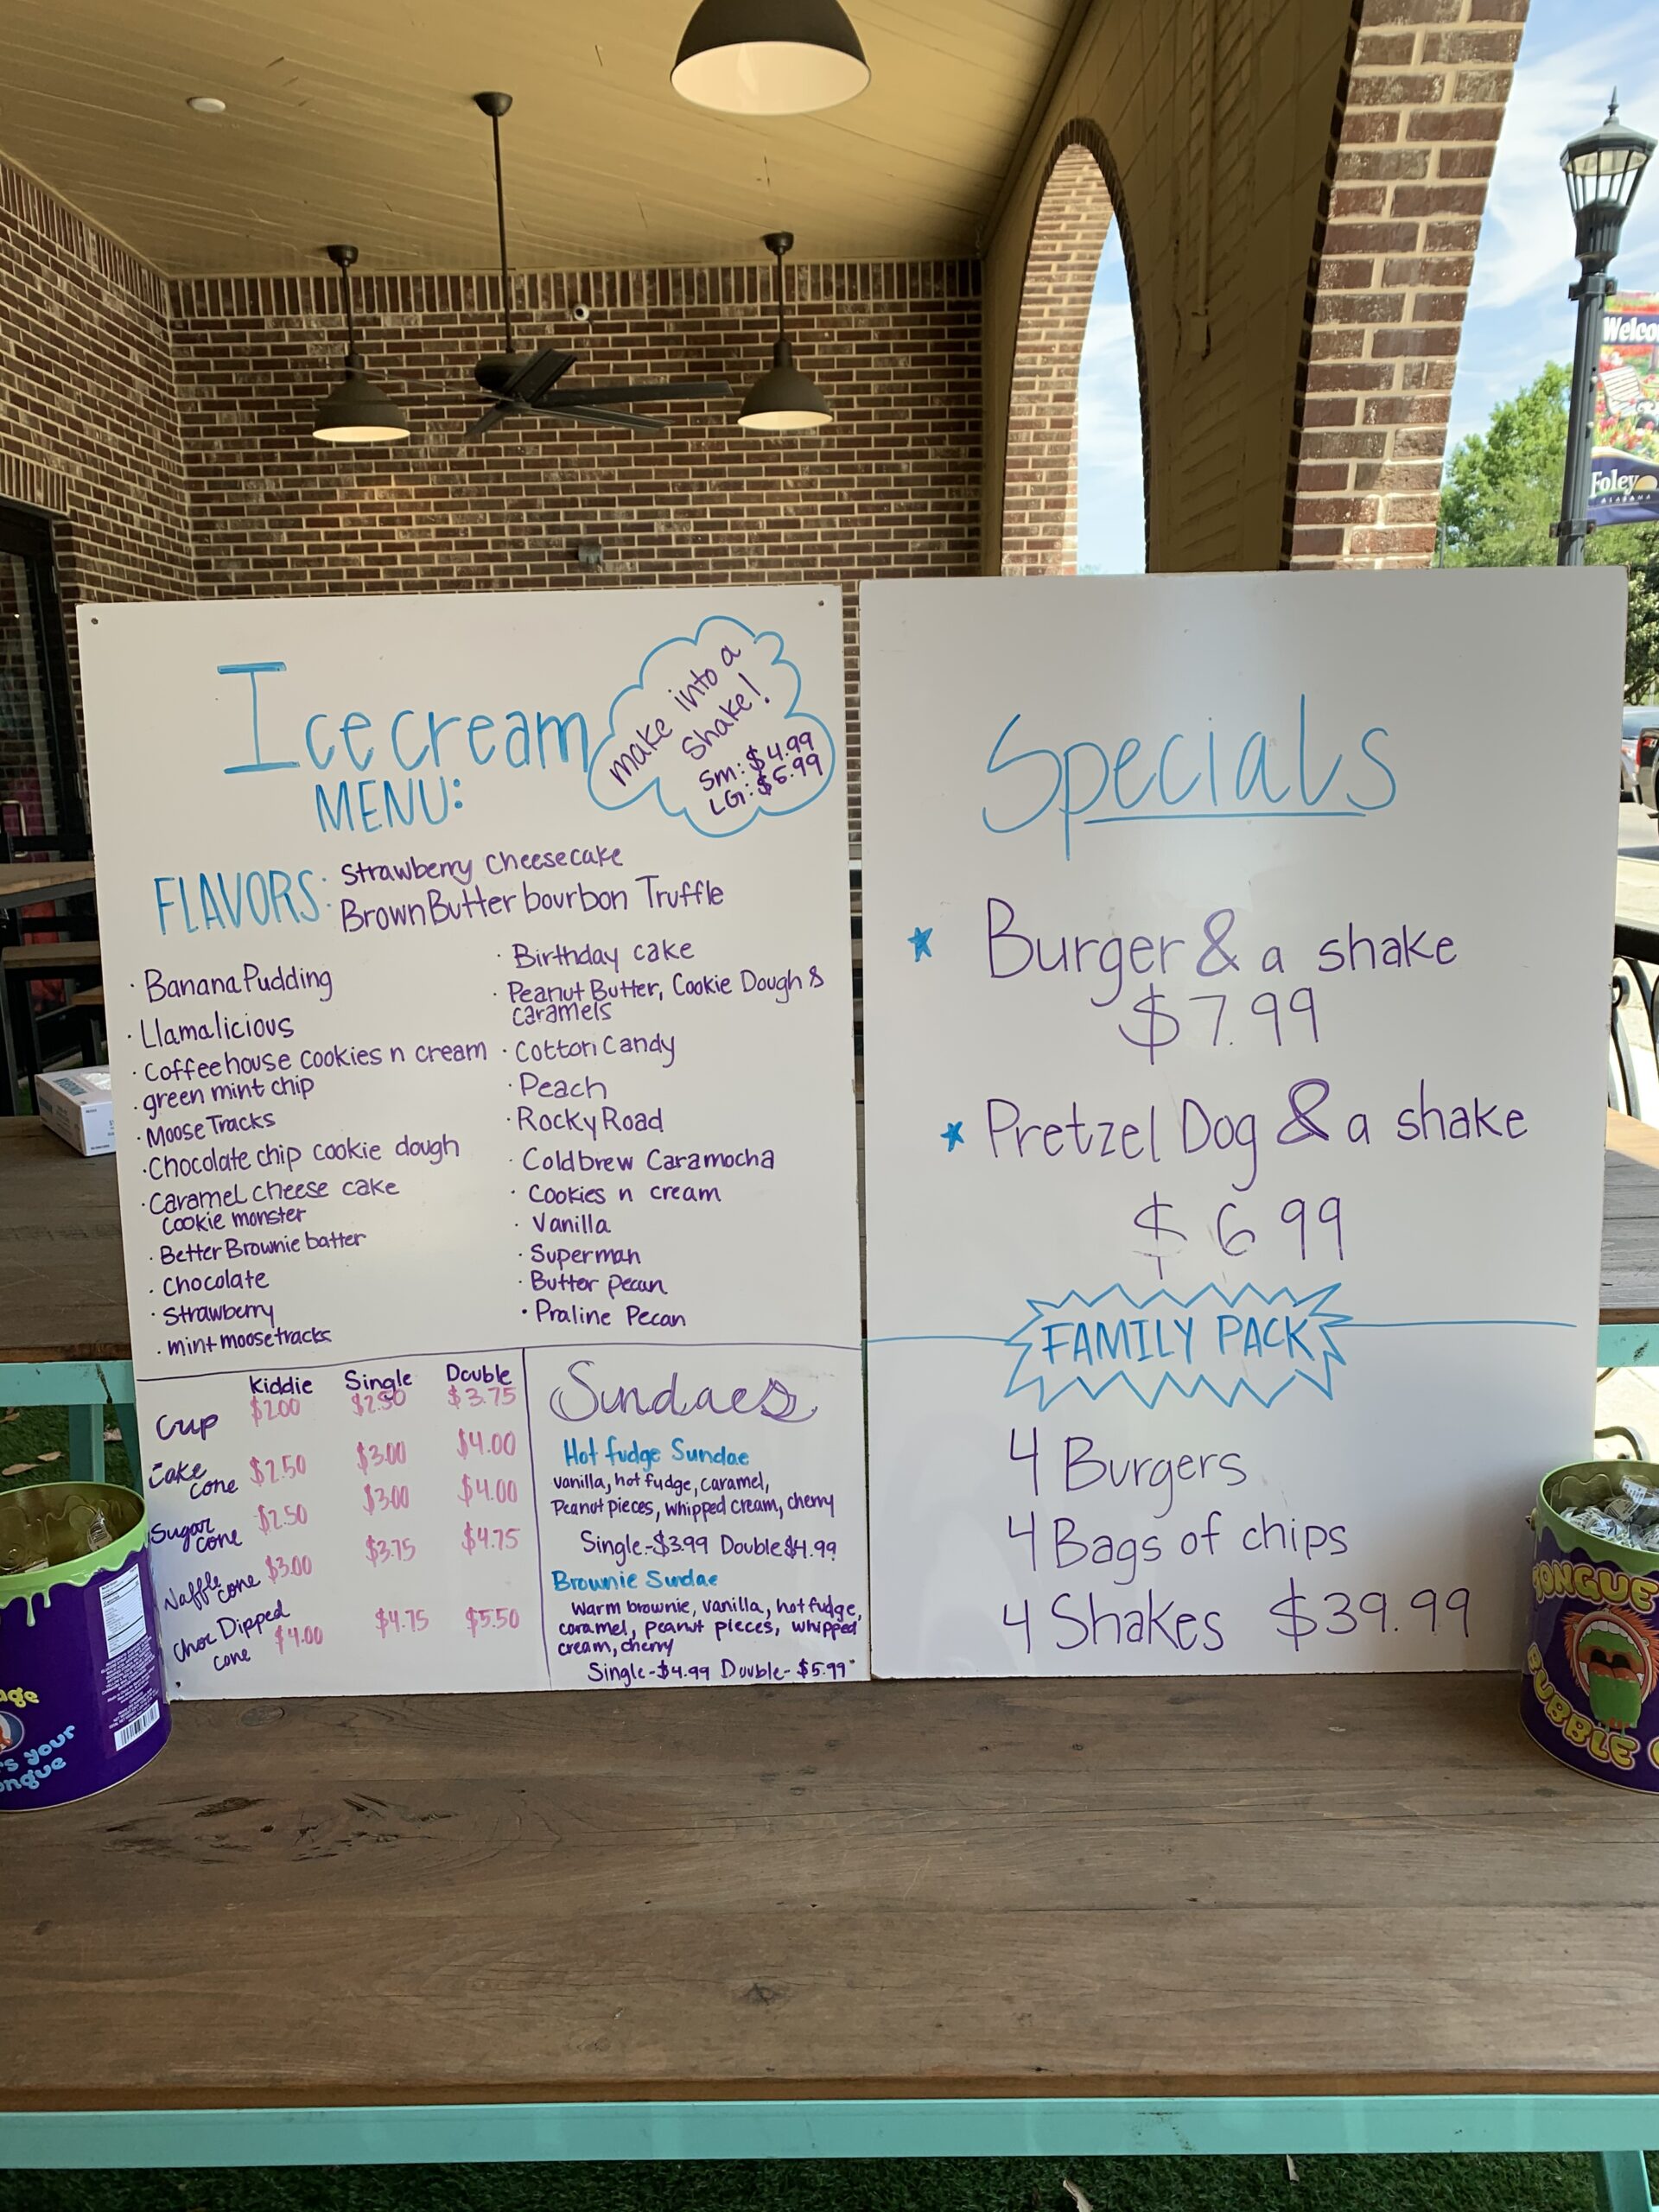 Ice cream
MENU:
make into a
shake!
Sm: $4.99
LG: $5.99
FLAVORS:
· Strawberry cheesecake
· Brown Butter bourbon Truffle
· Banana Pudding
· Llamalicious
· Coffeehouse cookies n cream
· green mint chip
· Moose Tracks
· Chocolate chip cookie dough
· Caramel cheese cake
cookie monster
· Better Brownie batter
· Chocolate
· Strawberry
· mint moosetracks
· Birthday cake
· Peanut Butter, Cookie Dough &
caramels
· Cotton Candy
· Peach
· Rocky Road
· Coldbrew Caramocha
· Cookies n cream
· Vanilla
· Superman
· Butter pecan
· Praline Pecan
Kiddie Single Double
Cup $2.00 $2.50 $3.75
Cake cone $2.50 $3.00 $4.00
Sugar cone $2.50 $3.00 $4.00
Waffle cone $3.00 $3.75 $4.75
Choc Dipped cone $4.00 $4.75 $5.50
Sundaes
Hot fudge Sundae
vanilla, hot fudge, caramel,
Peanut pieces, whipped cream, cherry
Single-$3.99 Double $4.99
Brownie Sundae
Warm brownie, vanilla, hot fudge,
caramel, peanut pieces, whipped
cream, cherry
Single-$4.99 Double-$5.99
Specials
Burger & a shake
$7.99
Pretzel Dog & a shake
$6 99
FAMILY PACK
4 Burgers
4 Bags of chips
4 Shakes $39.99
Foley
ALABAMA
your
TONGUE
BUBBLE